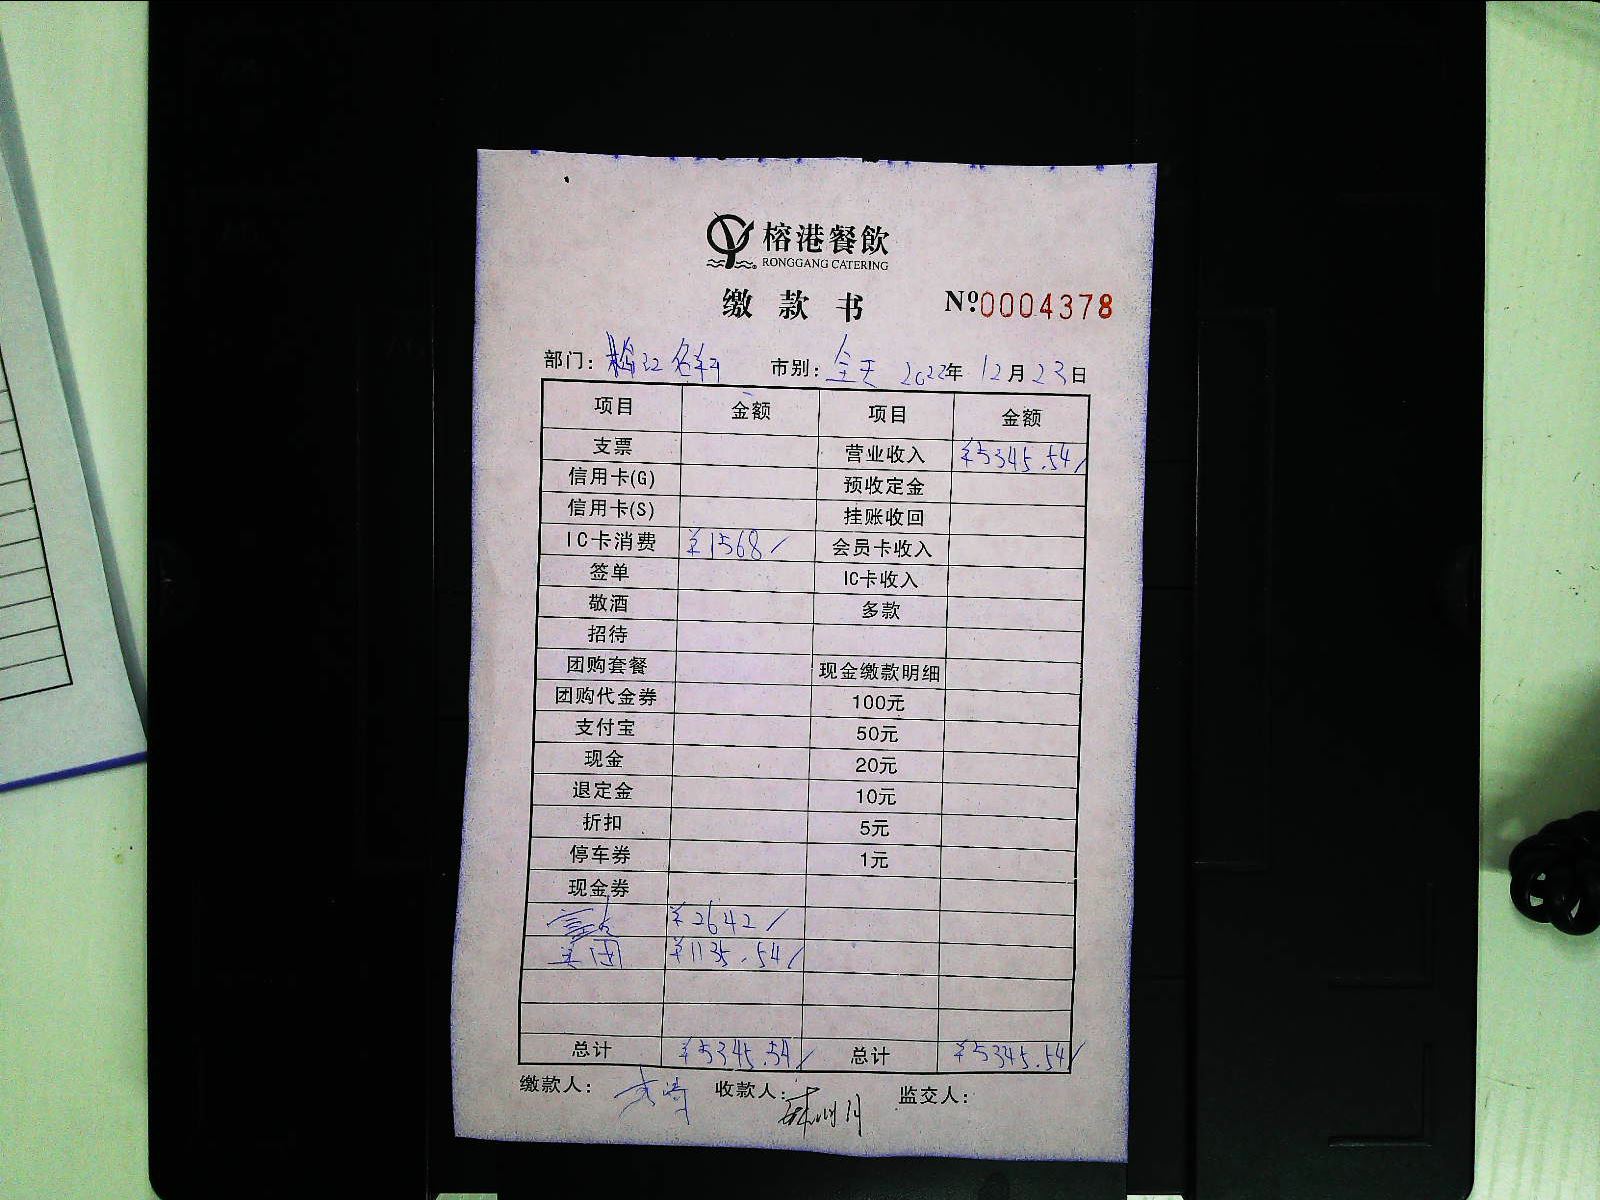 榕港餐飲
RONGGANG CATERING
缴款书 №0004378
部门： 市别：全天 2022年12月23日
项目 金额 项目 金额
支票 营业收入 ¥5345.54/
信用卡(G) 预收定金
信用卡(S) 挂账收回
IC卡消费 ¥1568/ 会员卡收入
签单 IC卡收入
敬酒 多款
招待
团购套餐 现金缴款明细
团购代金券 100元
支付宝 50元
现金 20元
退定金 10元
折扣 5元
停车券 1元
现金券
¥2642/
美团 ¥1135.54/
总计 ¥5345.54/ 总计 ¥5345.54/
缴款人： 收款人： 监交人：